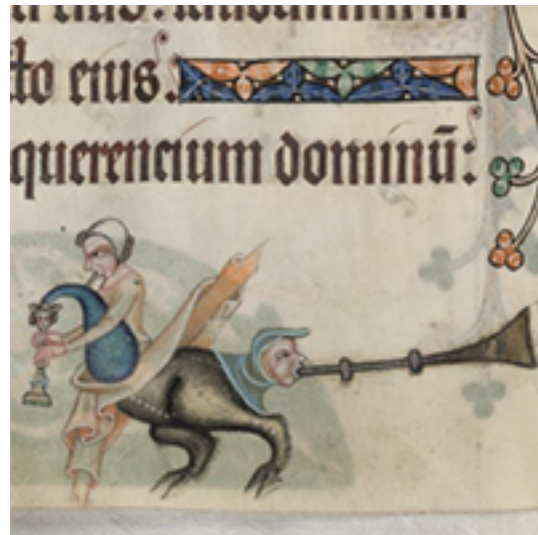 cto eius.
querencium dominū: